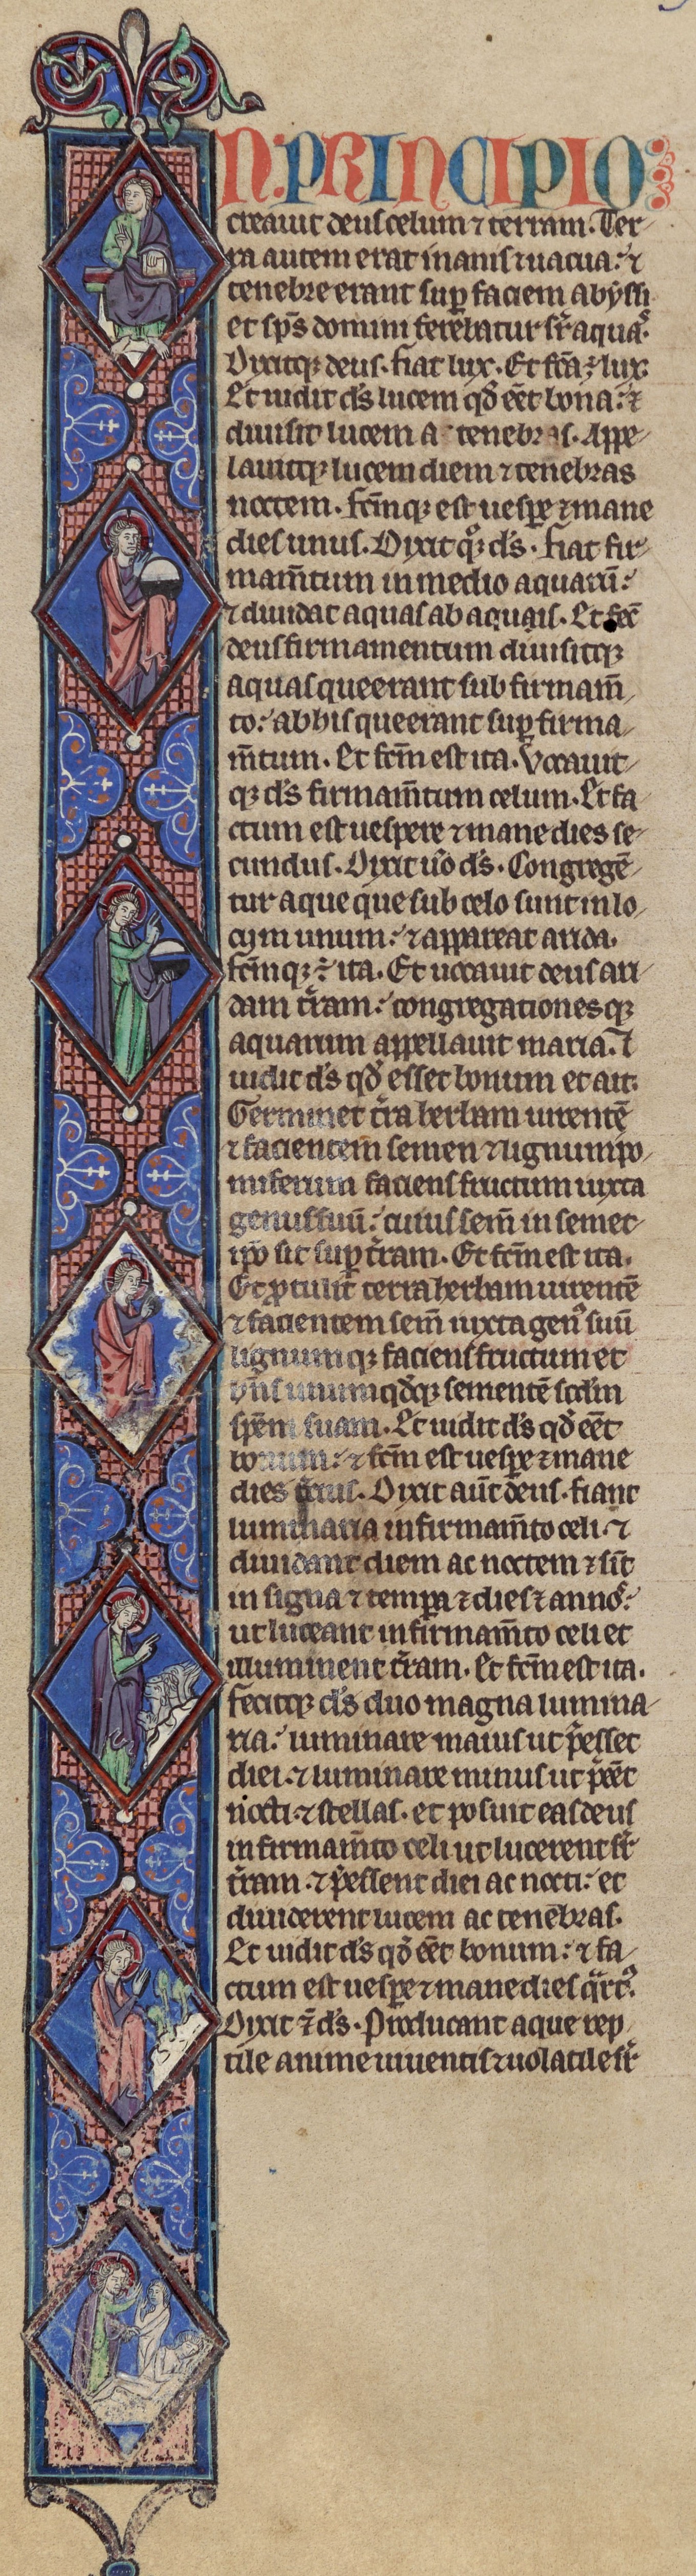 N. PRINCIPIO
creauit deus celum ⁊ terram. Ter-
ra autem erat inanis ⁊ uacua: ⁊
tenebre erant sup̲ faciem abyssi
et sp̄s domini ferebatur sr̄ aquas.
Dixitq; deus. fiat lux. Et fc̄a ē lux.
Et uidit d̄s lucem qđ eēt bona: ⁊
diuisit lucem a tenebras. Appe-
lauitq; lucem diem ⁊ tenebras
noctem. fc̄mq; est uesp̲e ⁊ mane
dies unus. Dixit q̊q; d̄s. fiat fir-
mam̄tum in medio aquarū:
⁊ diuidat aquas ab aquis. Et fec̄
deus firmamentum diuisitq;
aquas que erant sub firmam̄-
to: ab his que erant sup̲ firma-
m̄tum. Et fc̄m est ita. Vocauit-
q; d̄s firmam̄tum celum. Et fa-
ctum est uespere ⁊ mane dies se-
cundus. Dixit uo̊ d̄s. Congregē-
tur aque que sub celo sunt in lo-
cum unum: ⁊ appareat arida.
fc̄mq; ē ita. Et uocauit deus ari-
dam t̄ram: congregationesq;
aquarum appellauit maria. ⁊
uidit d̄s qđ esset bonum et ait.
Germinet t̄ra herbam uirentē
⁊ facientem semen ⁊ lignum po-
miferum faciens fructum iuxta
genus suū: cuius sem̄ in semet-
ip̄o sit sup̲ t̄ram. Et fc̄m est ita.
Et p̲tulit terra herbam uirentē
⁊ facientem sem̄ iuxta gen9 suū
lignumq; faciens fructum et
hn̄s unumqđq; sementē scđm
sp̄em suam. Et uidit d̄s qđ eēt
bonum: ⁊ fc̄m est uesp̲e ⁊ mane
dies t̄cius. Dixit aūt deus. fiant
luminaria in firmam̄to celi. ⁊
diuidant diem ac noctem ⁊ sīt
in signa ⁊ temp̲a ⁊ dies ⁊ annos:
ut luceant in firmam̄to celi et
illuminent t̄ram. Et fc̄m est ita.
fecitq; d̄s duo magna lumina-
ria: luminare maius ut p̄esset
diei: ⁊ luminare minus ut p̄eēt
nocti: ⁊ stellas. et posuit eas deus
in firmam̄to celi ut lucerent sr̄
t̄ram. ⁊ p̄essent diei ac nocti: et
diuiderent lucem ac tenebras.
Et uidit d̄s qđ eēt bonum: ⁊ fa-
ctum est uesp̲e ⁊ mane dies q̄rt9.
Dixit ē d̄s. Producant aque rep-
tile anime uiuentis ⁊ uolatile sr̄